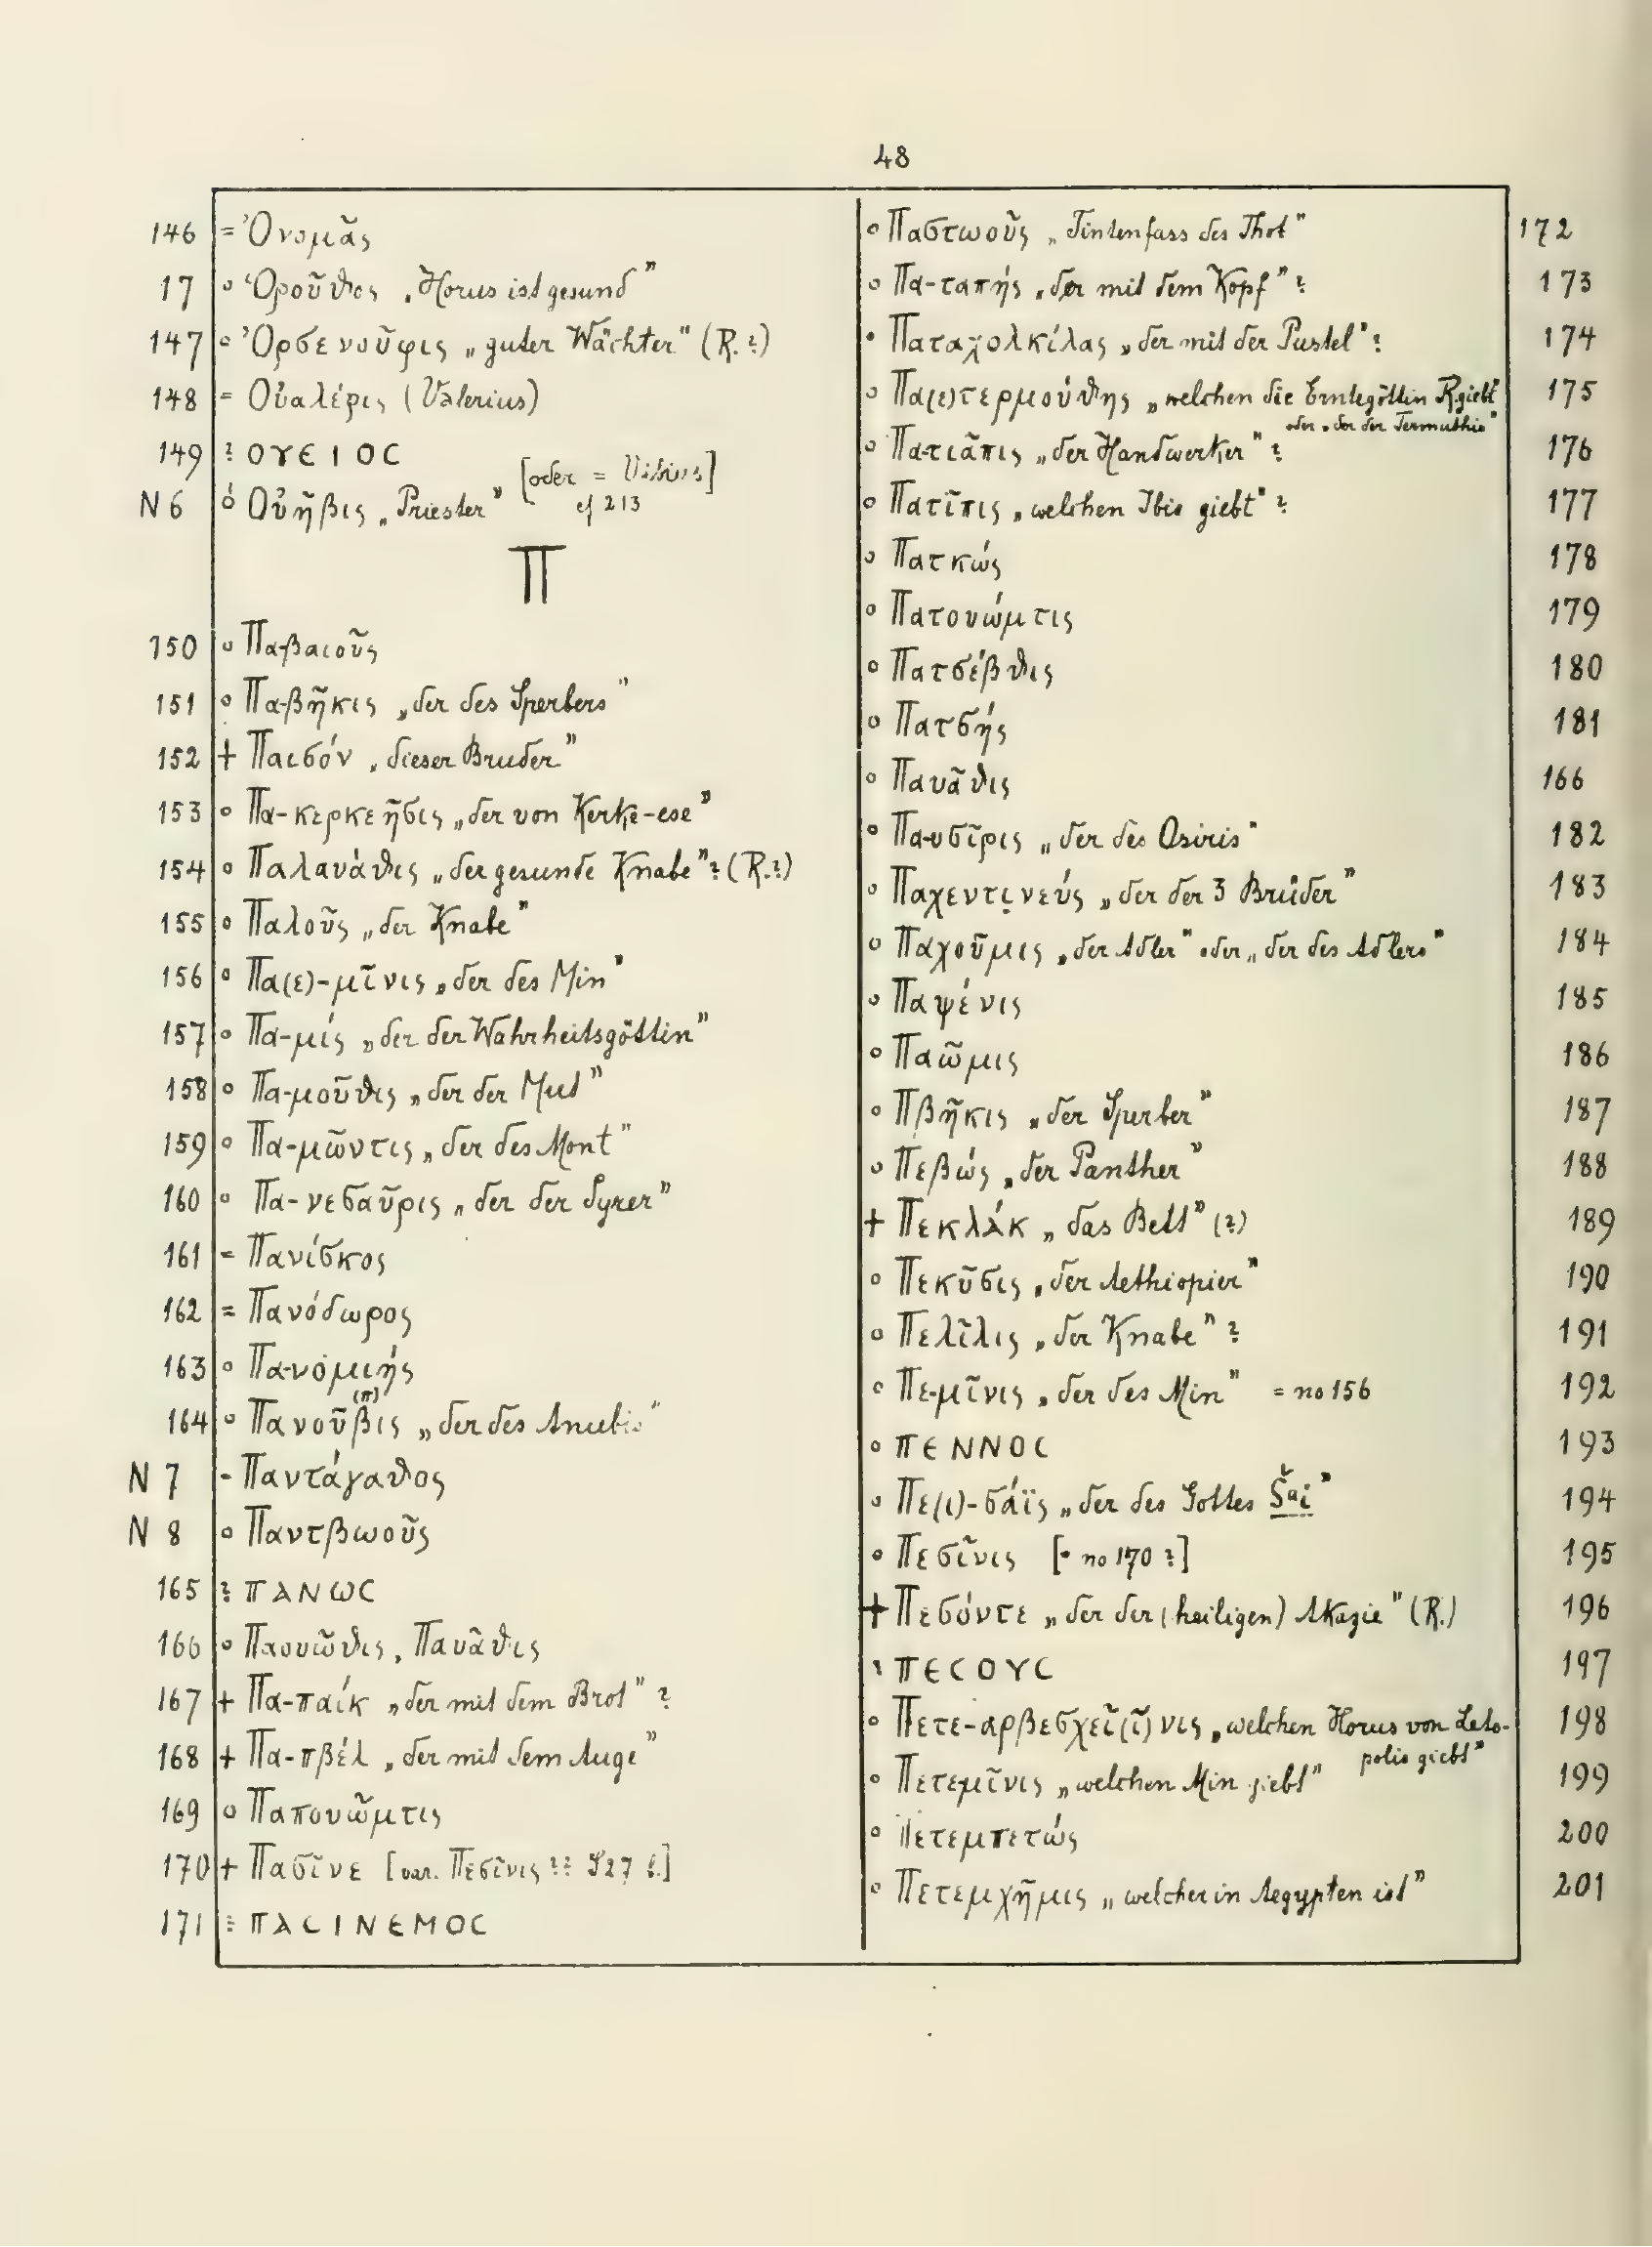 48
146 = Ὀνομᾶς
17 ° Ὁροῦθιος „Horus ist gesund”
147 ° Ὀρσενοῦφις „guter Wächter” (R.?)
148 = Οὐαλέρις (Valerius)
149 ? ΟΥΕΙΟC
N 6 ° Οὐῆβις „Priester” [oder = Vibius] cf 213
Π
150 ° Παβαιοῦς
151 ° Πα-βῆκις „der des Sperbers”
152 + Παισόν „dieser Bruder”
153 ° Πα-κερκεῆσις „der von Kerke-ese”
154 ° Παλαυάθις „der gesunde Knabe”? (R.?)
155 ° Παλοῦς „der Knabe”
156 ° Πα(ε)-μῖνις „der des Min”
157 ° Πα-μίς „der der Wahrheitsgöttin”
158 ° Πα-μοῦθις „der der Mut”
159 ° Πα-μῶντις „der des Mont”
160 ° Πα-νεσαῦρις „der der Syrer”
161 = Πανίσκος
162 = Πανόδωρος
163 ° Πα-νομιής
164 ° Πανοῦβ(π)ις „der des Anubis”
N 7 = Παντάγαθος
N 8 ° Παντβωοῦς
165 ? ΠΑΝΩC
166 ° Παουῶθις, Παυᾶθις
167 + Πα-παίκ „der mit dem Brot” ?
168 + Πα-πβέλ „der mit dem Auge”
169 ° Παπουῶμτις
170 + Πασῖνε [var. Πεσῖνις ??
171 ? ΠΑCΙΝΕΜΟC
° Παστωοῦς „Tintenfass des Thot” 172
° Πα-ταπής „der mit dem Kopf” ? 173
° Παταχολκίλας „der mit der Pustel” ? 174
° Πα(ε)τερμούθης „welchen die Erntegöttin R. giebt” 175
oder „der der Termuthis”
° Πατιᾶπις „der Handwerker” ? 176
° Πατῖπις „welchen Ibis giebt” ? 177
° Πατκώς 178
° Πατουώμτις 179
° Πατσέβθις 180
° Πατσής 181
° Παυᾶθις 166
° Πα-υσῖρις „der des Osiris” 182
° Παχεντινεύς „der der 3 Brüder” 183
° Παχοῦμις „der Adler” oder „der des Adlers” 184
° Παψένις 185
° Παῶμις 186
° Πβῆκις „der Sperber” 187
° Πεβώς „der Panther” 188
+ Πεκλάκ „das Bett” (?) 189
° Πεκῦσις „der Aethiopier” 190
° Πελῖλις „der Knabe” ? 191
° Πε-μῖνις „der des Min” = no 156 192
° ΠΕΝΝΟC 193
° Πε(ι)-σάϊς „der des Gottes Šai” 194
° Πεσῖνις [= no 170 ?] 195
+ Πεσόντε „der der (heiligen) Akazie” (R.) 196
? ΠΕCΟΥC 197
° Πετε-αρβεσχεῖ(ῖ)νις „welchen Horus von Leto- 198
polis giebt”
° Πετεμῖνις „welchen Min giebt” 199
° Πετεμπετώς 200
° Πετεμχῆμις „welcher in Aegypten ist” 201